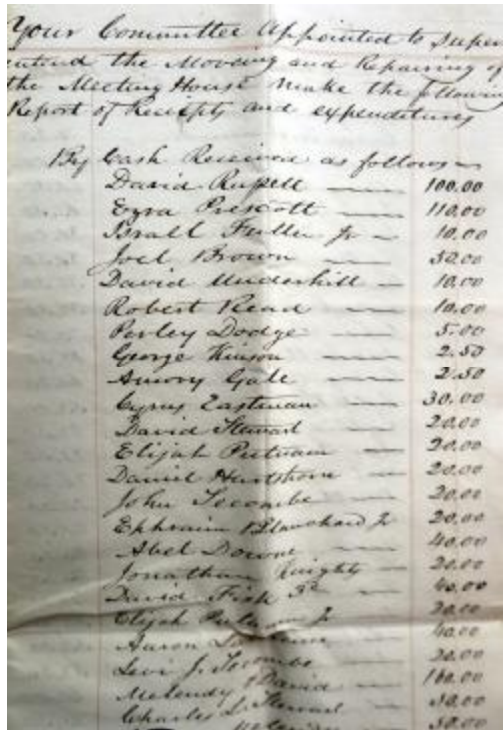 Your Committee Appointed to Super
intend the Mooving and Repairing of
the Meeting House make the following
Report of Receipts and expenditures
By Cash Received as follows
David Russell 100.00
Ezra Prescott 110.00
Israll Fuller Jr 10.00
Joel Brown 50.00
David Underhill 10.00
Robert Read 10.00
Perley Dodge 5.00
George Kinson 2.50
Amory Gale 2.50
Cyrus Eastman 30.00
David Stewart 20.00
Elijah Putnam 20.00
Daniel Hartshorn 20.00
John Secombe 20.00
Ephraim Blanchard Jr 20.00
Abel Downe 40.00
Jonathan Knights 20.00
David Fisk 3d 40.00
Elijah Putnam Jr 20.00
Aaron 40.00
Levi J. Secombe 20.00
Melendy & David 160.00
Charles L. Stewart 50.00
50.00